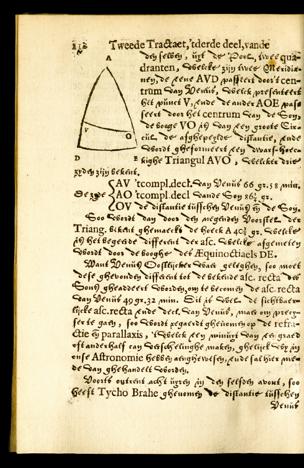 212 Tweede Tractaet, 'tderde deel, vande
den selven, uyt de Pool, twee qua-
dranten, Welcke zijn twee Meridia-
nen, de eene AVD passeert door't cen-
trum van Venus, Welck presenteert
het punct V, ende de ander AOE pas-
seert door het centrum van de Son,
de boge VO is van een groote Cir-
cul de afghepelde, ende
formeert een
kighe Triangul AVO, Welckers drie
zyden zijn bekent.
A
V
O
D E
De zyde
AV 'tcompl. decl. van Venus 66 gr. 58 min.
AO tcompl. decl vande Son 86½ gr.
OV de distantie tusschen Venus en de Son,
Soo Wordt dan door den negenden Voorstel der
Triang. bekent ghemaeckt de hoeck A 40½ gr. Welcke
is het begeerde different der asc. Welcke afgemeten
Wordt door de boghe des Æquinoctiaels DE.
Want Venus Oostlijcker Was gelegen, soo moet
dese ghevonden different tot de bekende asc. recta des
Sons gheaddeert Worden, om te becomen de asc. recta
van Venus 49 gr. 32 min. Dit is Wel de sichtbaer-
lijcke asc. recta ende decl. van Venus, maer om preci-
ser te gaen, soo Wordt regaerdt ghenomen op de refra-
ctie en parallaxis, 'tWelck een minuyt van een graed
oft anderhalf can verschelinghe maken, ghelijck Wy in
onse Astronomie hebben aenghewesen, ende sal hier me-
de van ghehandelt Worden.
Voorts ontrent acht uyren in den selfden avont, soo
heeft Tycho Brahe ghenomen de distantie tusschen
Venus